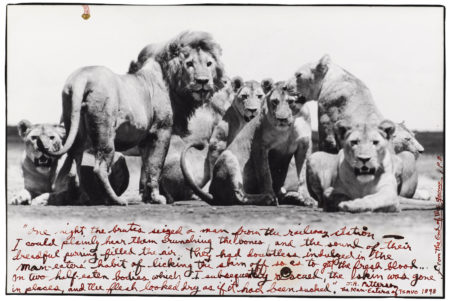 "One night the brutes seized a man from the railway station
I could plainly hear them crunching the bones, and the sound of their
dreadful purring filled the air. They had doubtless indulged in the
man-eaters' habit of licking the skin off so as to get the fresh blood...
on two half-eaten bodies which I subsequently rescued the skin was gone
in places, and the flesh looked dry as if it had been sucked."
J.H. Patterson
The Man-Eaters of TSAVO 1898
From The End of The Game / P.B.